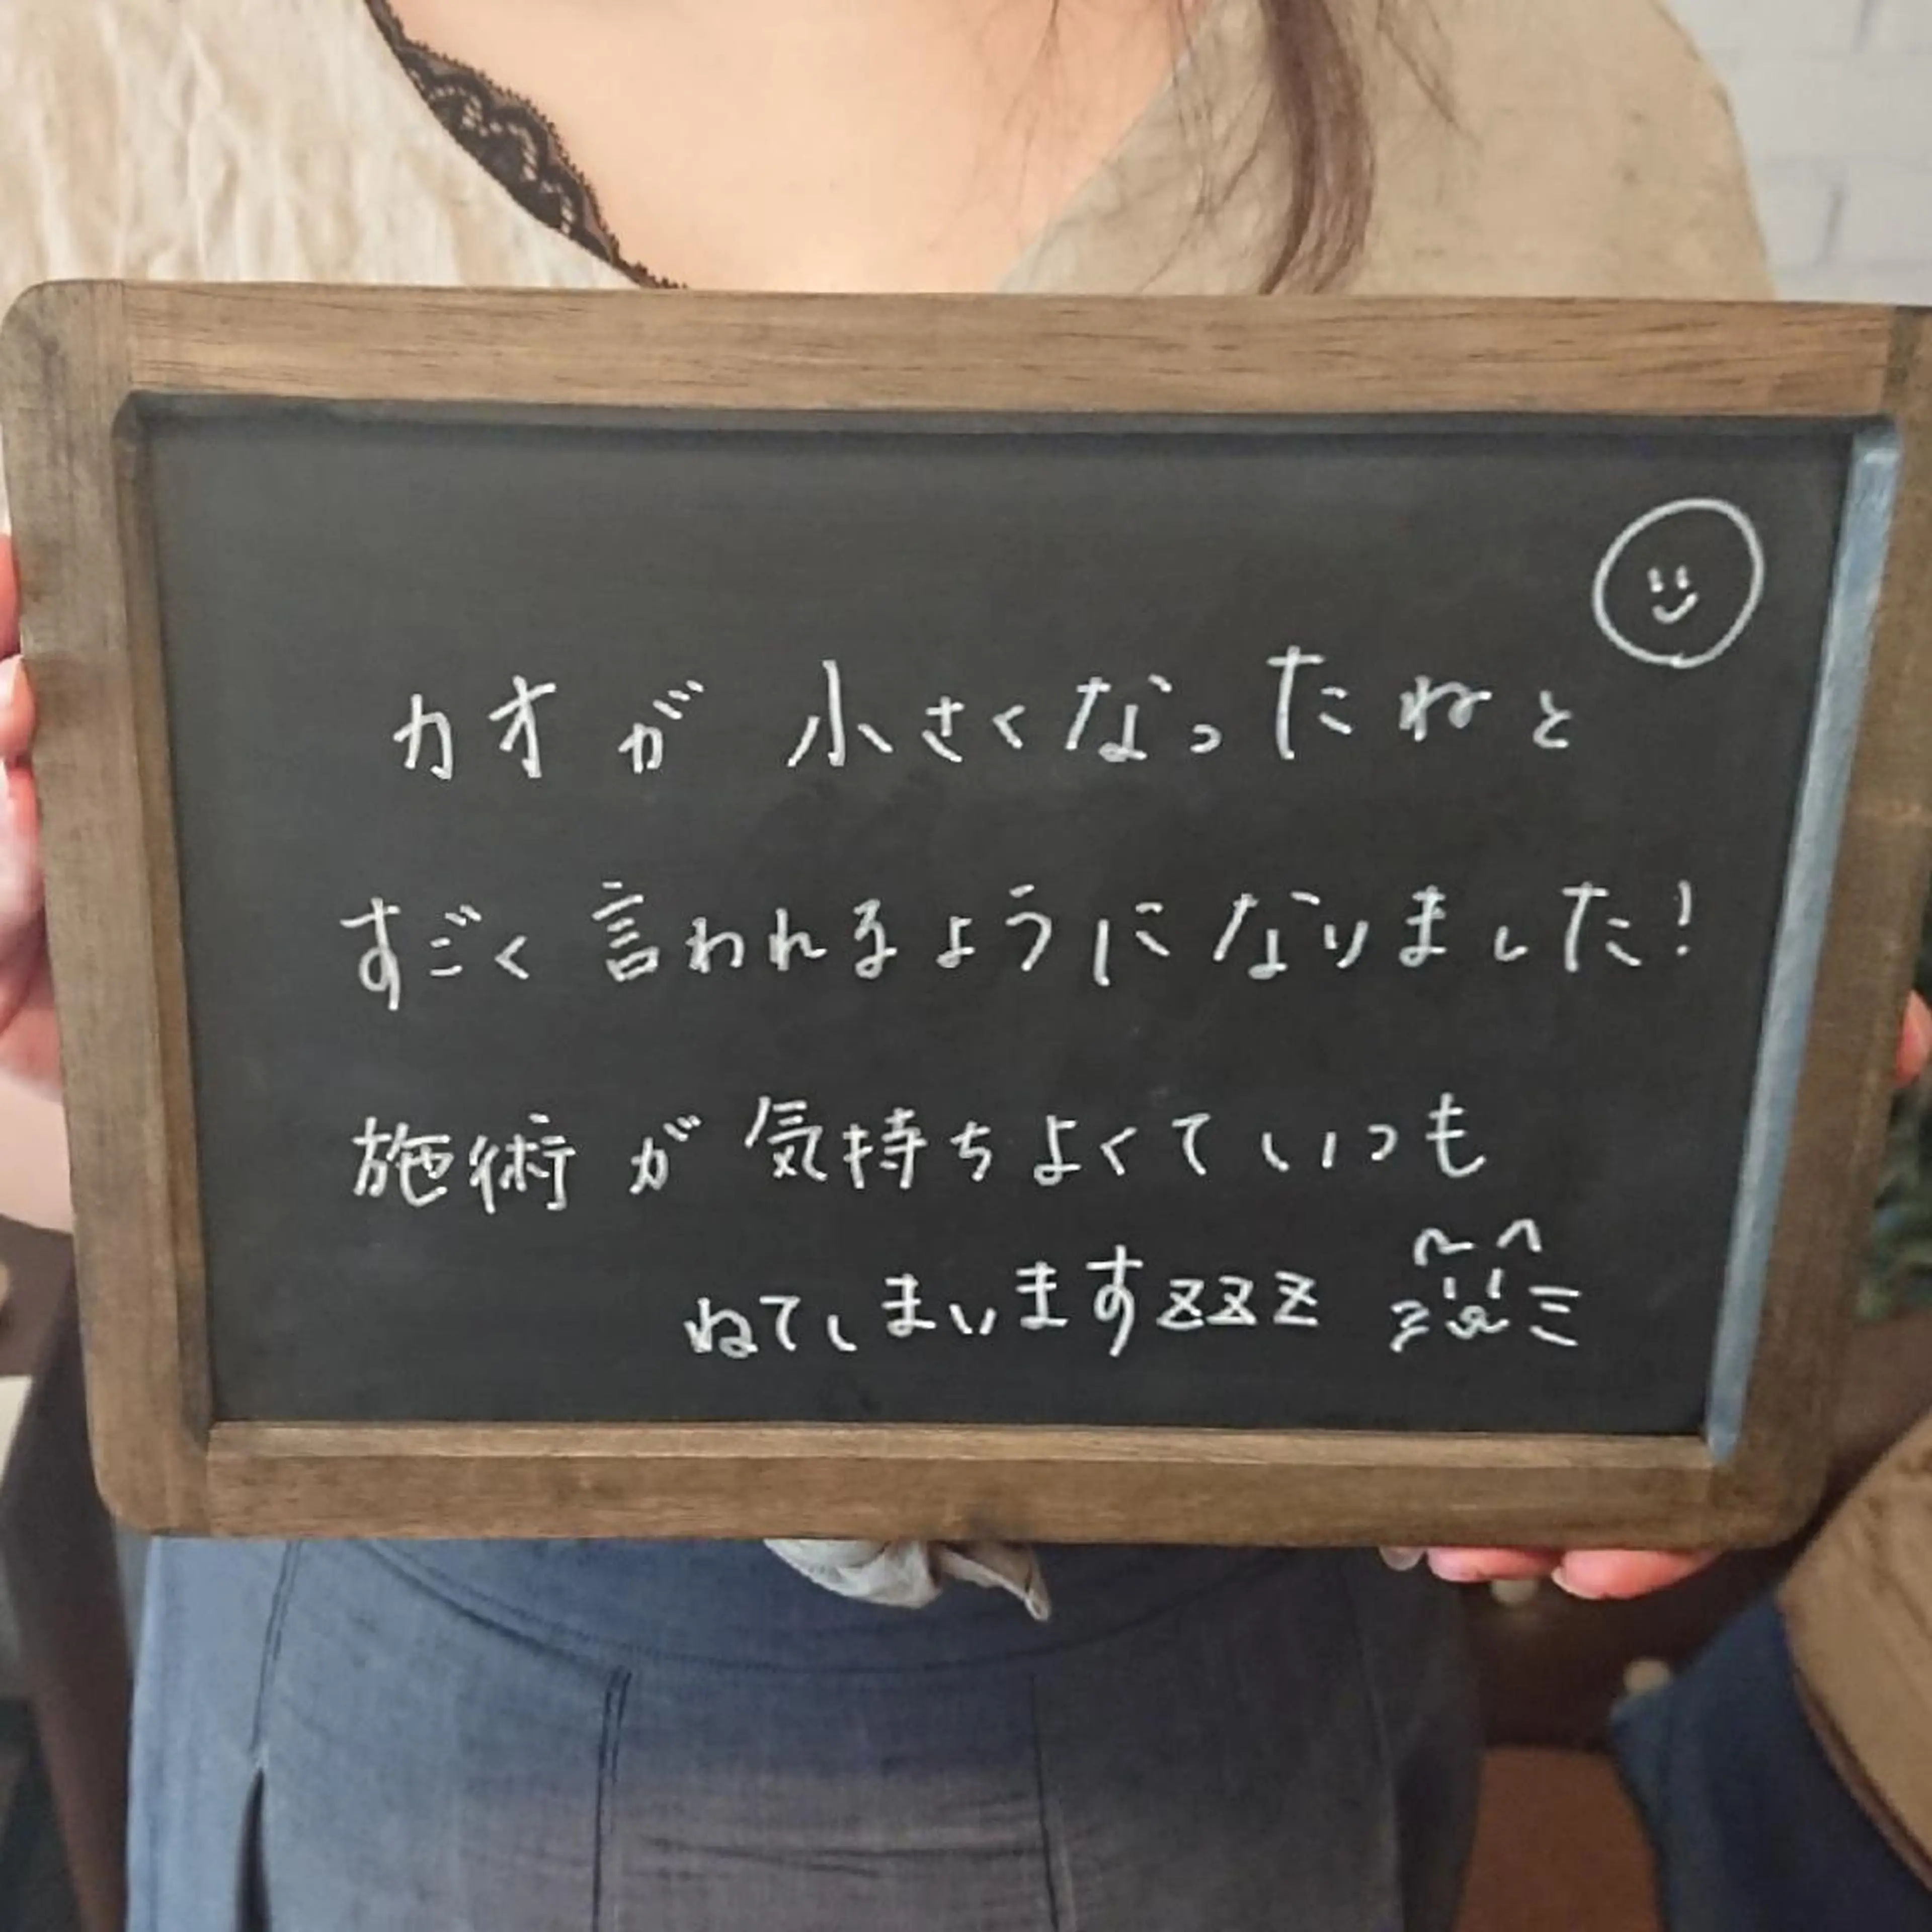 カオが小さくなったねと
すごく言われるようになりました!
施術が気持ちよくていつも
ねてしまいますzzz